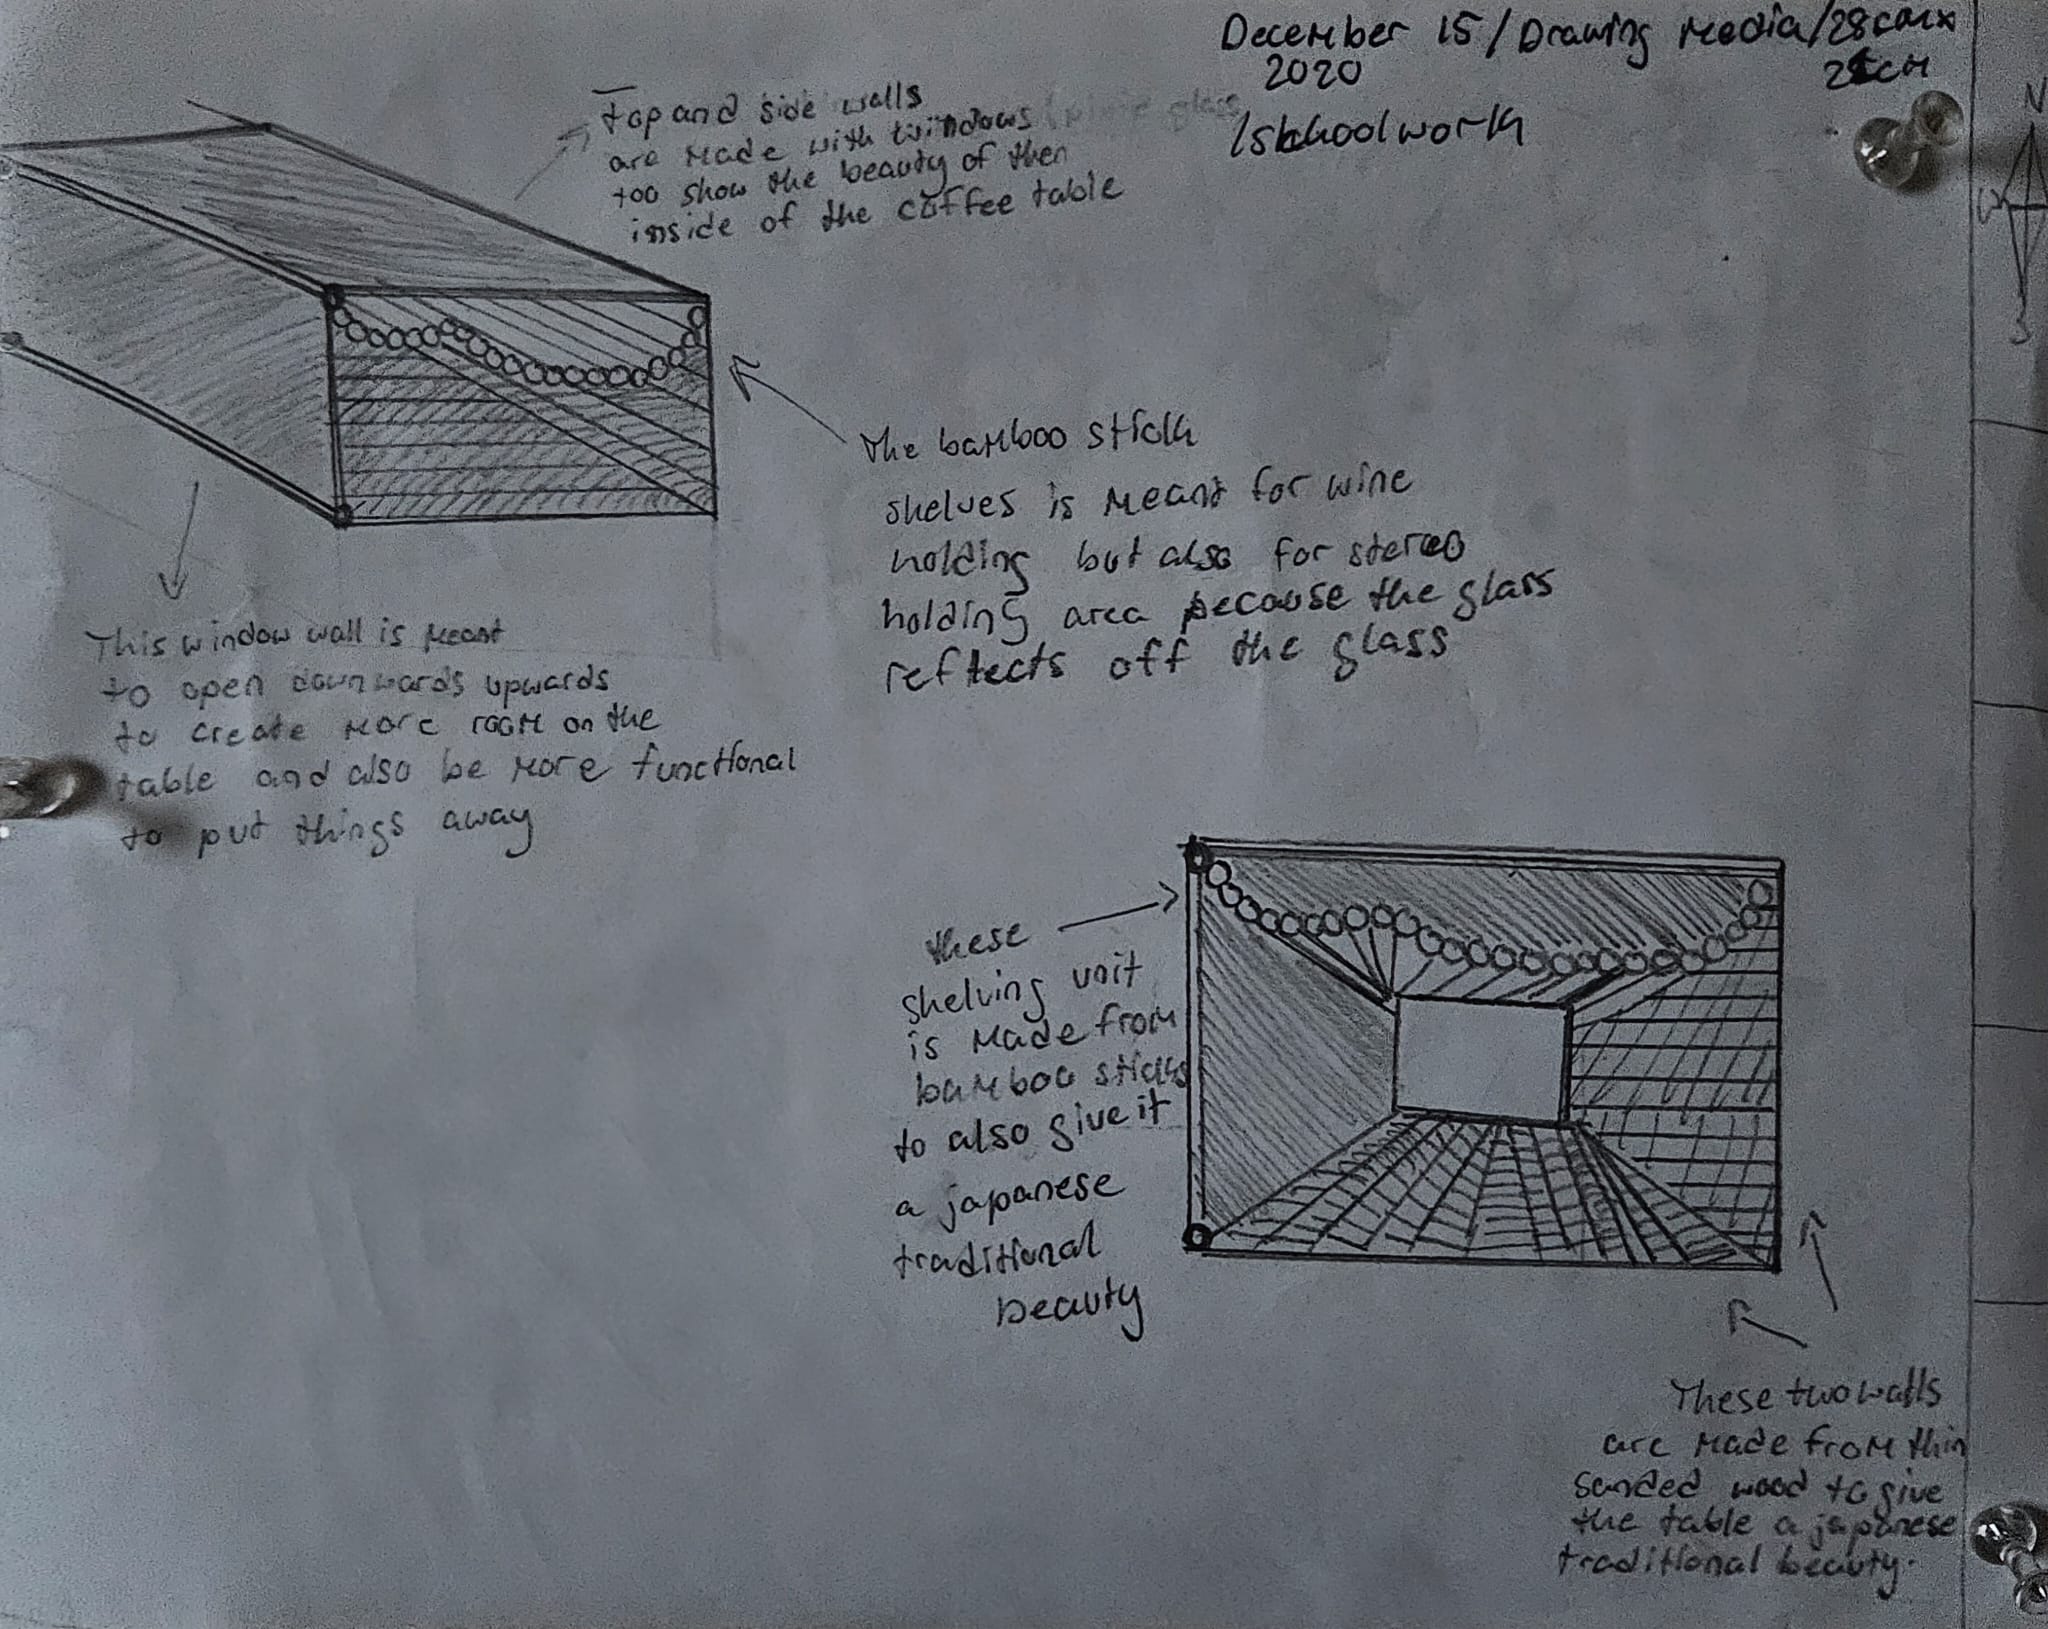 December 15/Drawing Media/28cm x
2020
cm
/schoolwork
top and side walls
are made with windows
too show the beauty of then
inside of the coffee table
N
W
S
The bamboo stick
shelves is meant for wine
holding but also for stereo
holding area because the glass
reflects off the glass
This window wall is meant
to open downwards upwards
to create more room on the
table and also be more functional
to put things away
these
shelving unit
is made from
bamboo sticks
to also give it
a japanese
traditional
beauty
These two walls
are made from thin
sanded wood to give
the table a japanese
traditional beauty.